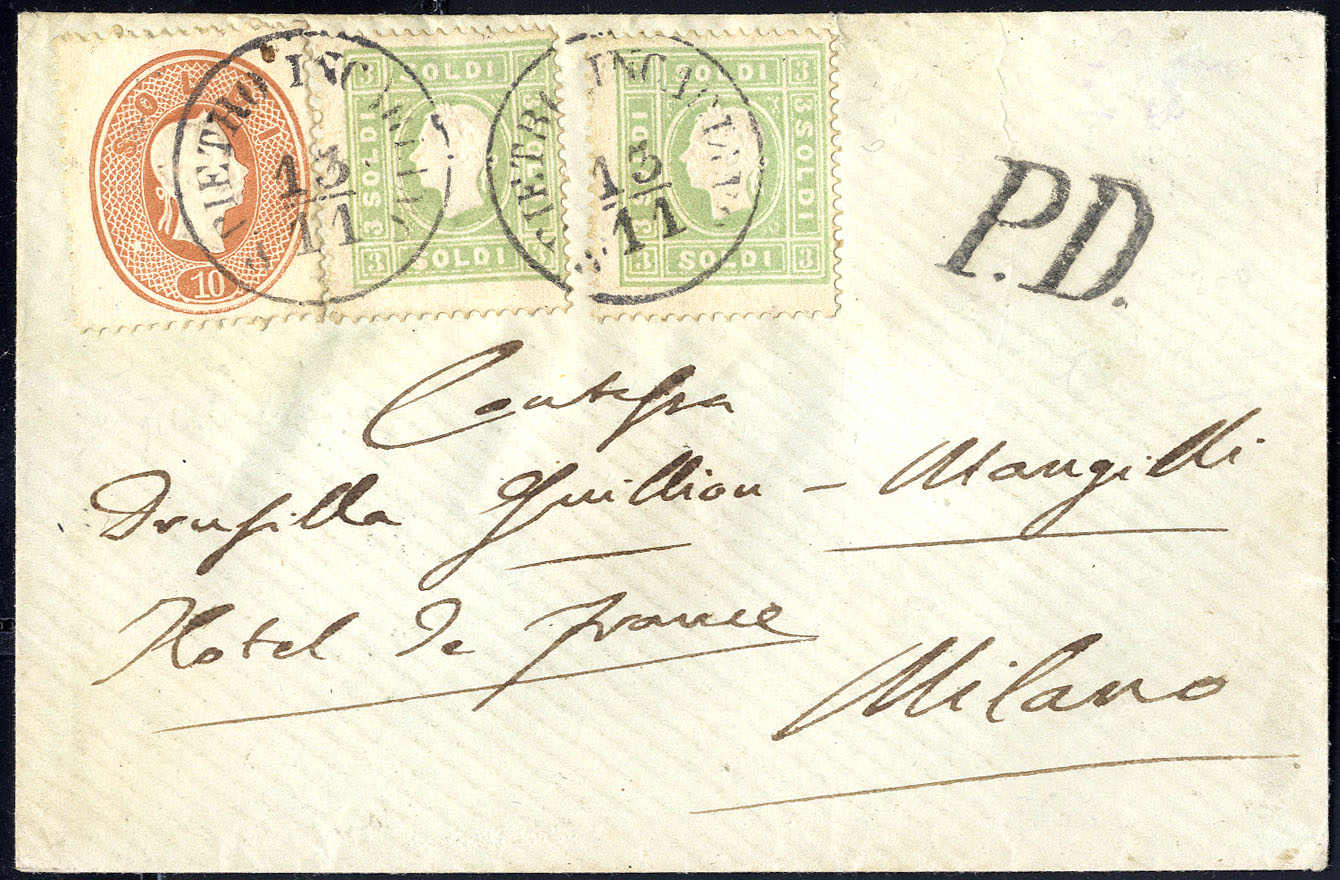 SOLDI
10
3 SOLDI 3
3 SOLDI
3 SOLDI
3 SOLDI 3
3 SOLDI 3
3 SOLDI
3 SOLDI
3 SOLDI 3
S. PIETRO INCARIANO
13/11
S. PIETRO INCARIANO
13/11
P.D.
Contessa
Drusilla Guillion - Mangilli
Hotel de France
Milano